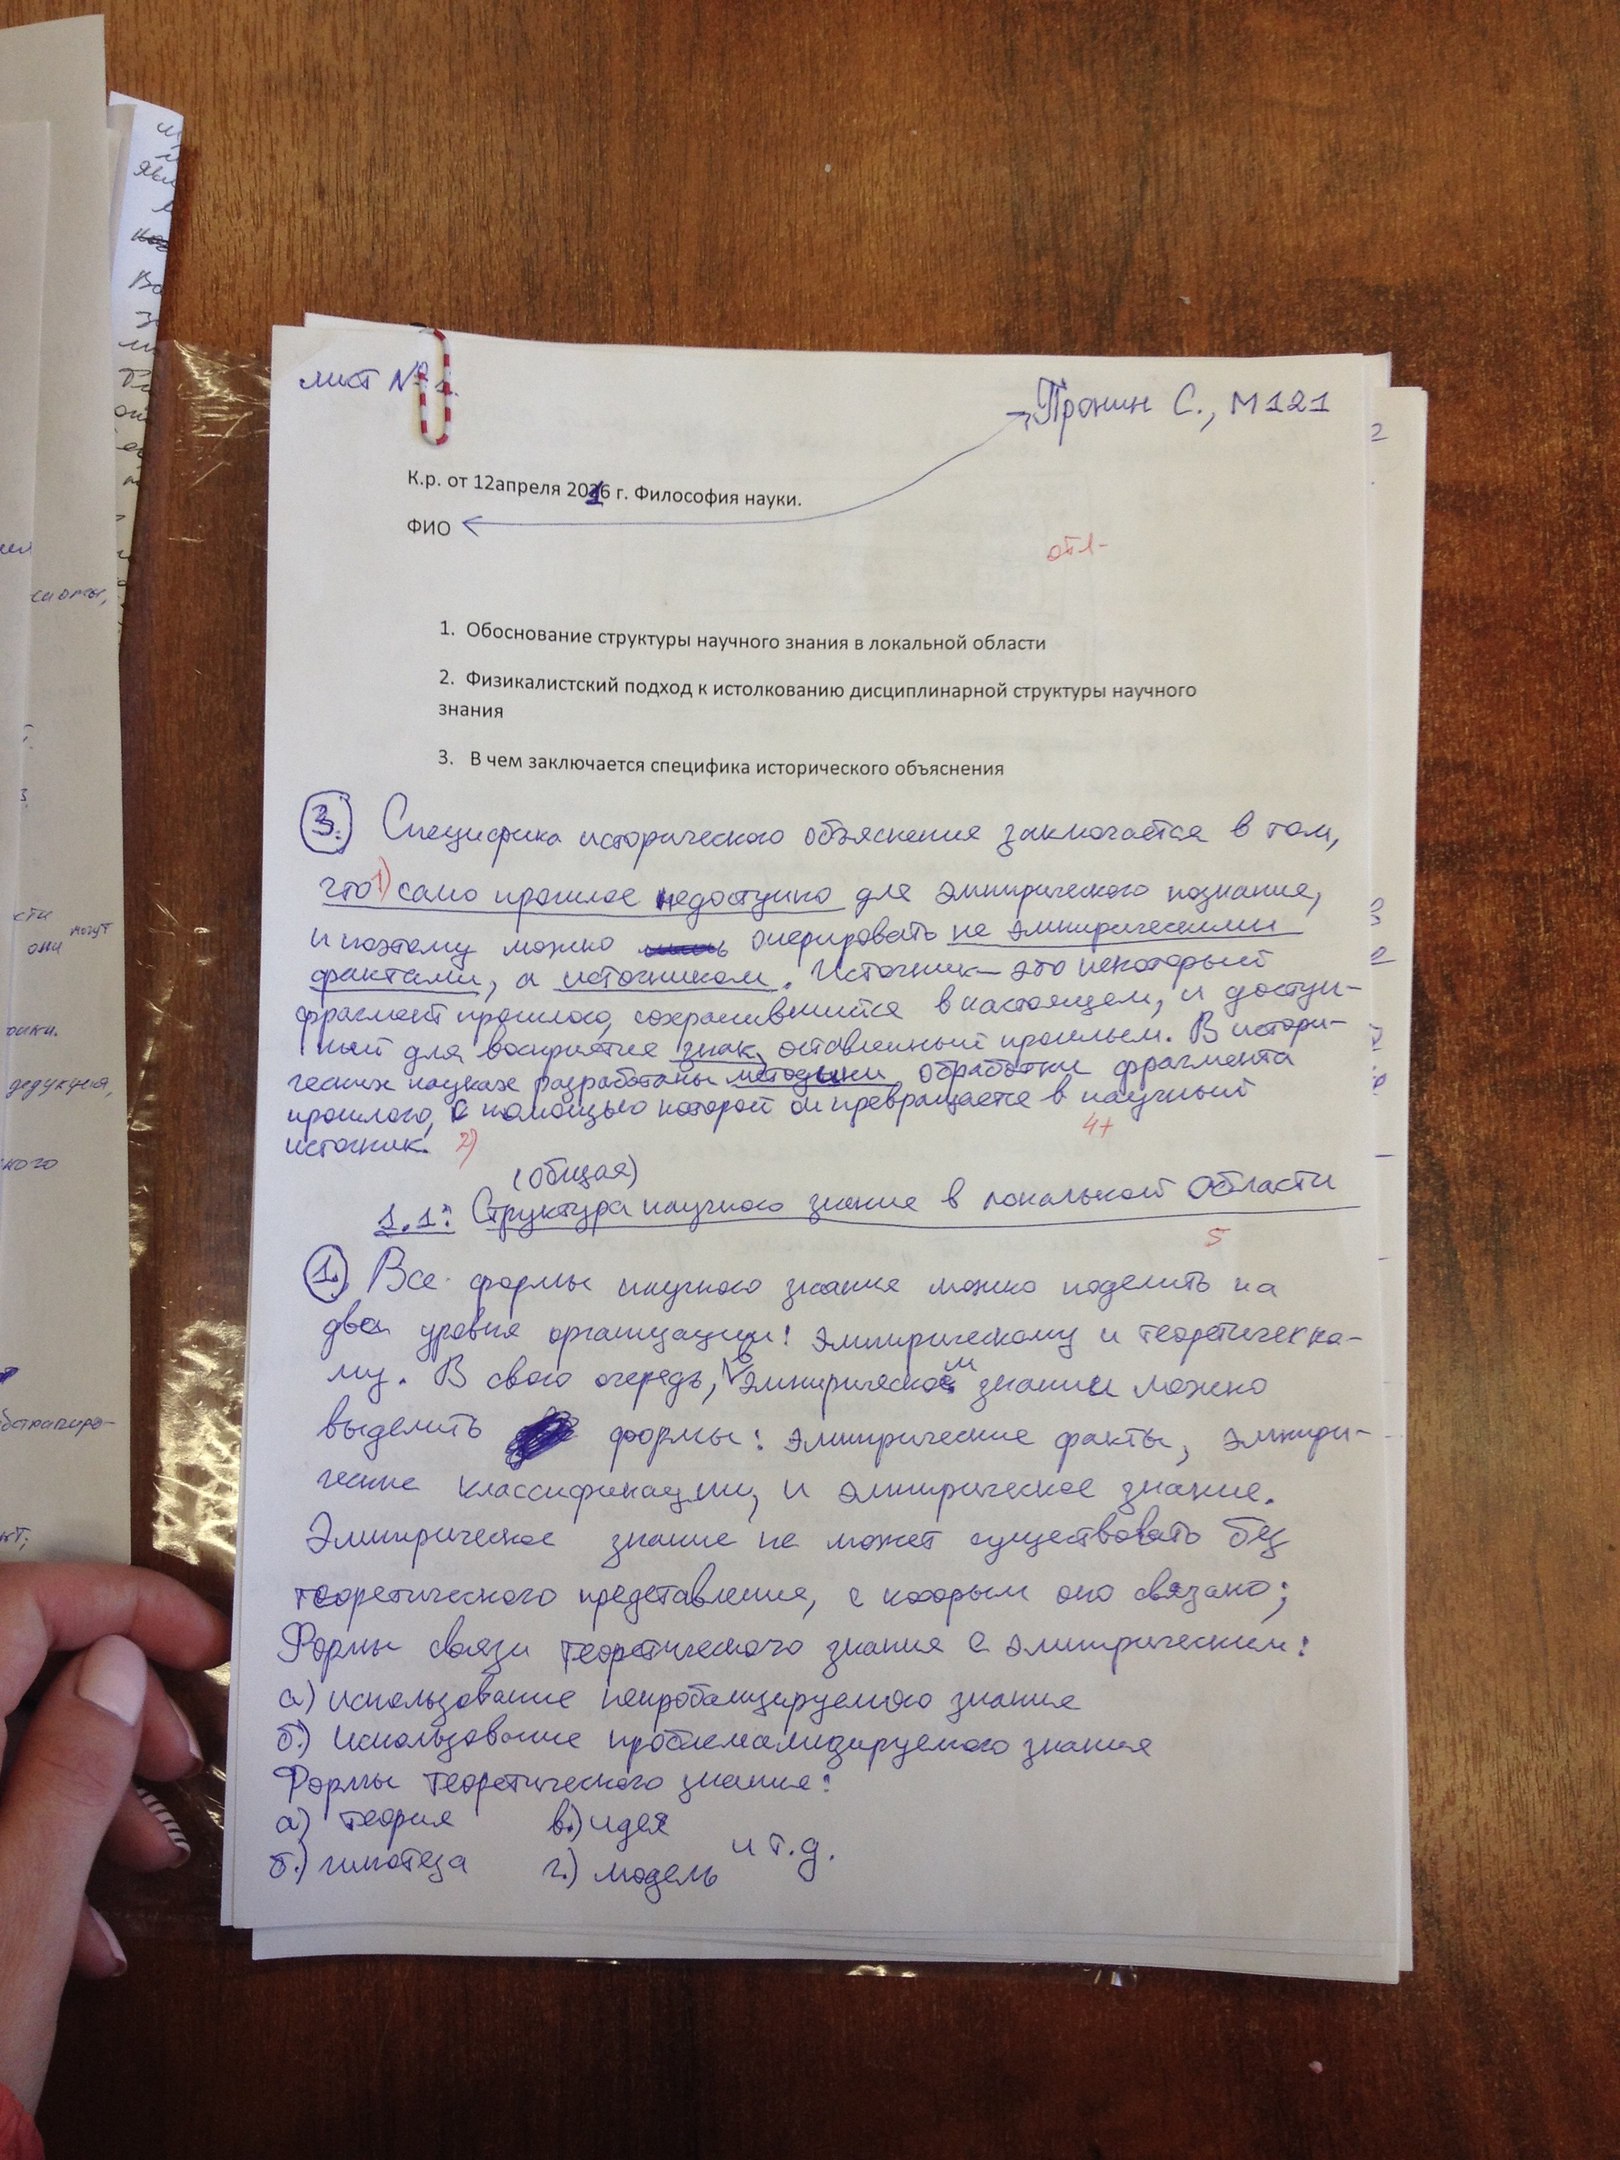 лист № 1.
Пронин С., М121
К.р. от 12апреля 2016 г. Философия науки.
ФИО
отл-
1. Обоснование структуры научного знания в локальной области
2. Физикалистский подход к истолкованию дисциплинарной структуры научного
знания
3. В чем заключается специфика исторического объяснения
3. Специфика исторического объяснения заключается в том,
что 1) само прошлое недоступно для эмпирического познания,
и поэтому можно оперировать не эмпирическими
фактами, а источником. Источник – это некоторый
фрагмент прошлого, сохранившийся в настоящем, и доступ-
ный для восприятия знак, оставленный прошлым. В истори-
ческих науках разработаны методики обработки фрагмента
прошлого, с помощью которой он превращается в научный
источник. 2)
4+
(общая)
1.1: Структура научного знания в локальной области
5
1. Все формы научного знания можно поделить на
два уровня организации: эмпирическому и теоретическо-
му. В свою очередь, в эмпирическом знании можно
выделить формы: эмпирические факты, эмпири-
ческие классификации, и эмпирическое знание.
Эмпирическое знание не может существовать без
теоретического представления, с которым оно связано;
Формы связи теоретического знания с эмпирическим:
а) использование непробацируемого знания
б.) Использование проблемализируемого знания
Формы теоретического знания:
а) теория в.) идея
б.) гипотеза г.) модель и т.д.
сиомы,
сти
они могут
оики.
дедукция,
ного
бстрагиро-
нт;